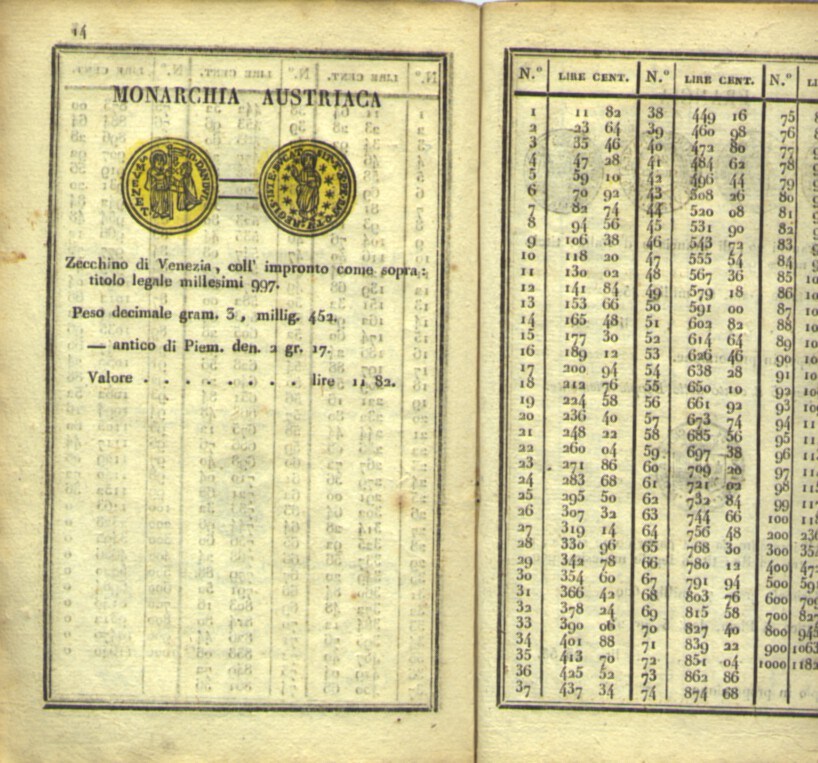 14
MONARCHIA AUSTRIACA
Zecchino di Venezia, coll' impronto come sopra:
titolo legale millesimi 997.
Peso decimale gram. 3, millig. 452.
— antico di Piem. den. 2 gr. 17.
Valore . . . . . . . . lire 11 82.
N.° LIRE CENT. N.° LIRE CENT. N.° LI
1 11 82 38 449 16 75 8
2 23 64 39 460 98 76 8
3 35 46 40 472 80 77 9
4 47 28 41 484 62 78 9
5 59 10 42 496 44 79 9
6 70 92 43 508 26 80 9
7 82 74 44 520 08 81 9
8 94 56 45 531 90 82 9
9 106 38 46 543 72 83 9
10 118 20 47 555 54 84 9
11 130 02 48 567 36 85 10
12 141 84 49 579 18 86 10
13 153 66 50 591 00 87 10
14 165 48 51 602 82 88 10
15 177 30 52 614 64 89 10
16 189 12 53 626 46 90 10
17 200 94 54 638 28 91 10
18 212 76 55 650 10 92 10
19 224 58 56 661 92 93 10
20 236 40 57 673 74 94 11
21 248 22 58 685 56 95 11
22 260 04 59 697 38 96 11
23 271 86 60 709 20 97 11
24 283 68 61 721 02 98 115
25 295 50 62 732 84 99 117
26 307 32 63 744 66 100 118
27 319 14 64 756 48 200 236
28 330 96 65 768 30 300 354
29 342 78 66 780 12 400 472
30 354 60 67 791 94 500 591
31 366 42 68 803 76 600 709
32 378 24 69 815 58 700 827
33 390 06 70 827 40 800 945
34 401 88 71 839 22 900 1063
35 413 70 72 851 04 1000 1182
36 425 52 73 862 86
37 437 34 74 874 68